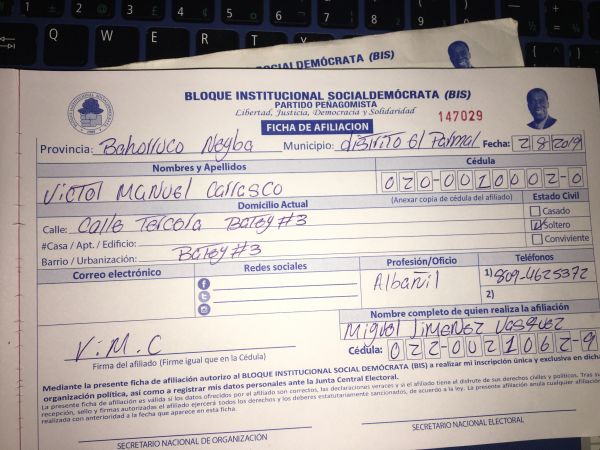 Q W E R T
SOCIALDEMÓCRATA (BIS)
BLOQUE INSTITUCIONAL SOCIALDEMÓCRATA (BIS)
PARTIDO PEÑAGOMISTA
Libertad, Justicia, Democracia y Solidaridad
147029
FICHA DE AFILIACION
Provincia: Bahorruco Neyba Municipio: distrito El Palmal Fecha: 2/8/2019
Nombres y Apellidos Cédula
Victol Manuel Carrasco 020-0010002-0
Domicilio Actual (Anexar copia de cédula del afiliado) Estado Civil
Calle: Calle Tercera Batey #3 Casado
#Casa / Apt. / Edificio: Soltero
Barrio / Urbanización: Batey #3 Conviviente
Correo electrónico Redes sociales Profesión/Oficio Teléfonos
Albañil 1) 809-4625372
2)
Nombre completo de quien realiza la afiliación
Miguel Jimenez Vasquez
V. M. C Cédula: 022-0021062-9
Firma del afiliado (Firme igual que en la Cédula)
Mediante la presente ficha de afiliación autorizo al BLOQUE INSTITUCIONAL SOCIAL DEMÓCRATA (BIS) a realizar mi inscripción única y exclusiva en dicha
organización política, así como a registrar mis datos personales ante la Junta Central Electoral.
La presente ficha de afiliación es válida si los datos ofrecidos por el afiliado son correctos, las declaraciones veraces y si el afiliado tiene el disfrute de sus derechos civiles y políticos. Tras su
recepción, sello y firmas autorizadas el afiliado ejercerá todos los derechos y los deberes estatutariamente sancionados, de acuerdo a la ley. La presente afiliación anula cualquier afiliación
realizada con anterioridad a la fecha que aparece en esta ficha.
SECRETARIO NACIONAL DE ORGANIZACIÓN SECRETARIO NACIONAL ELECTORAL